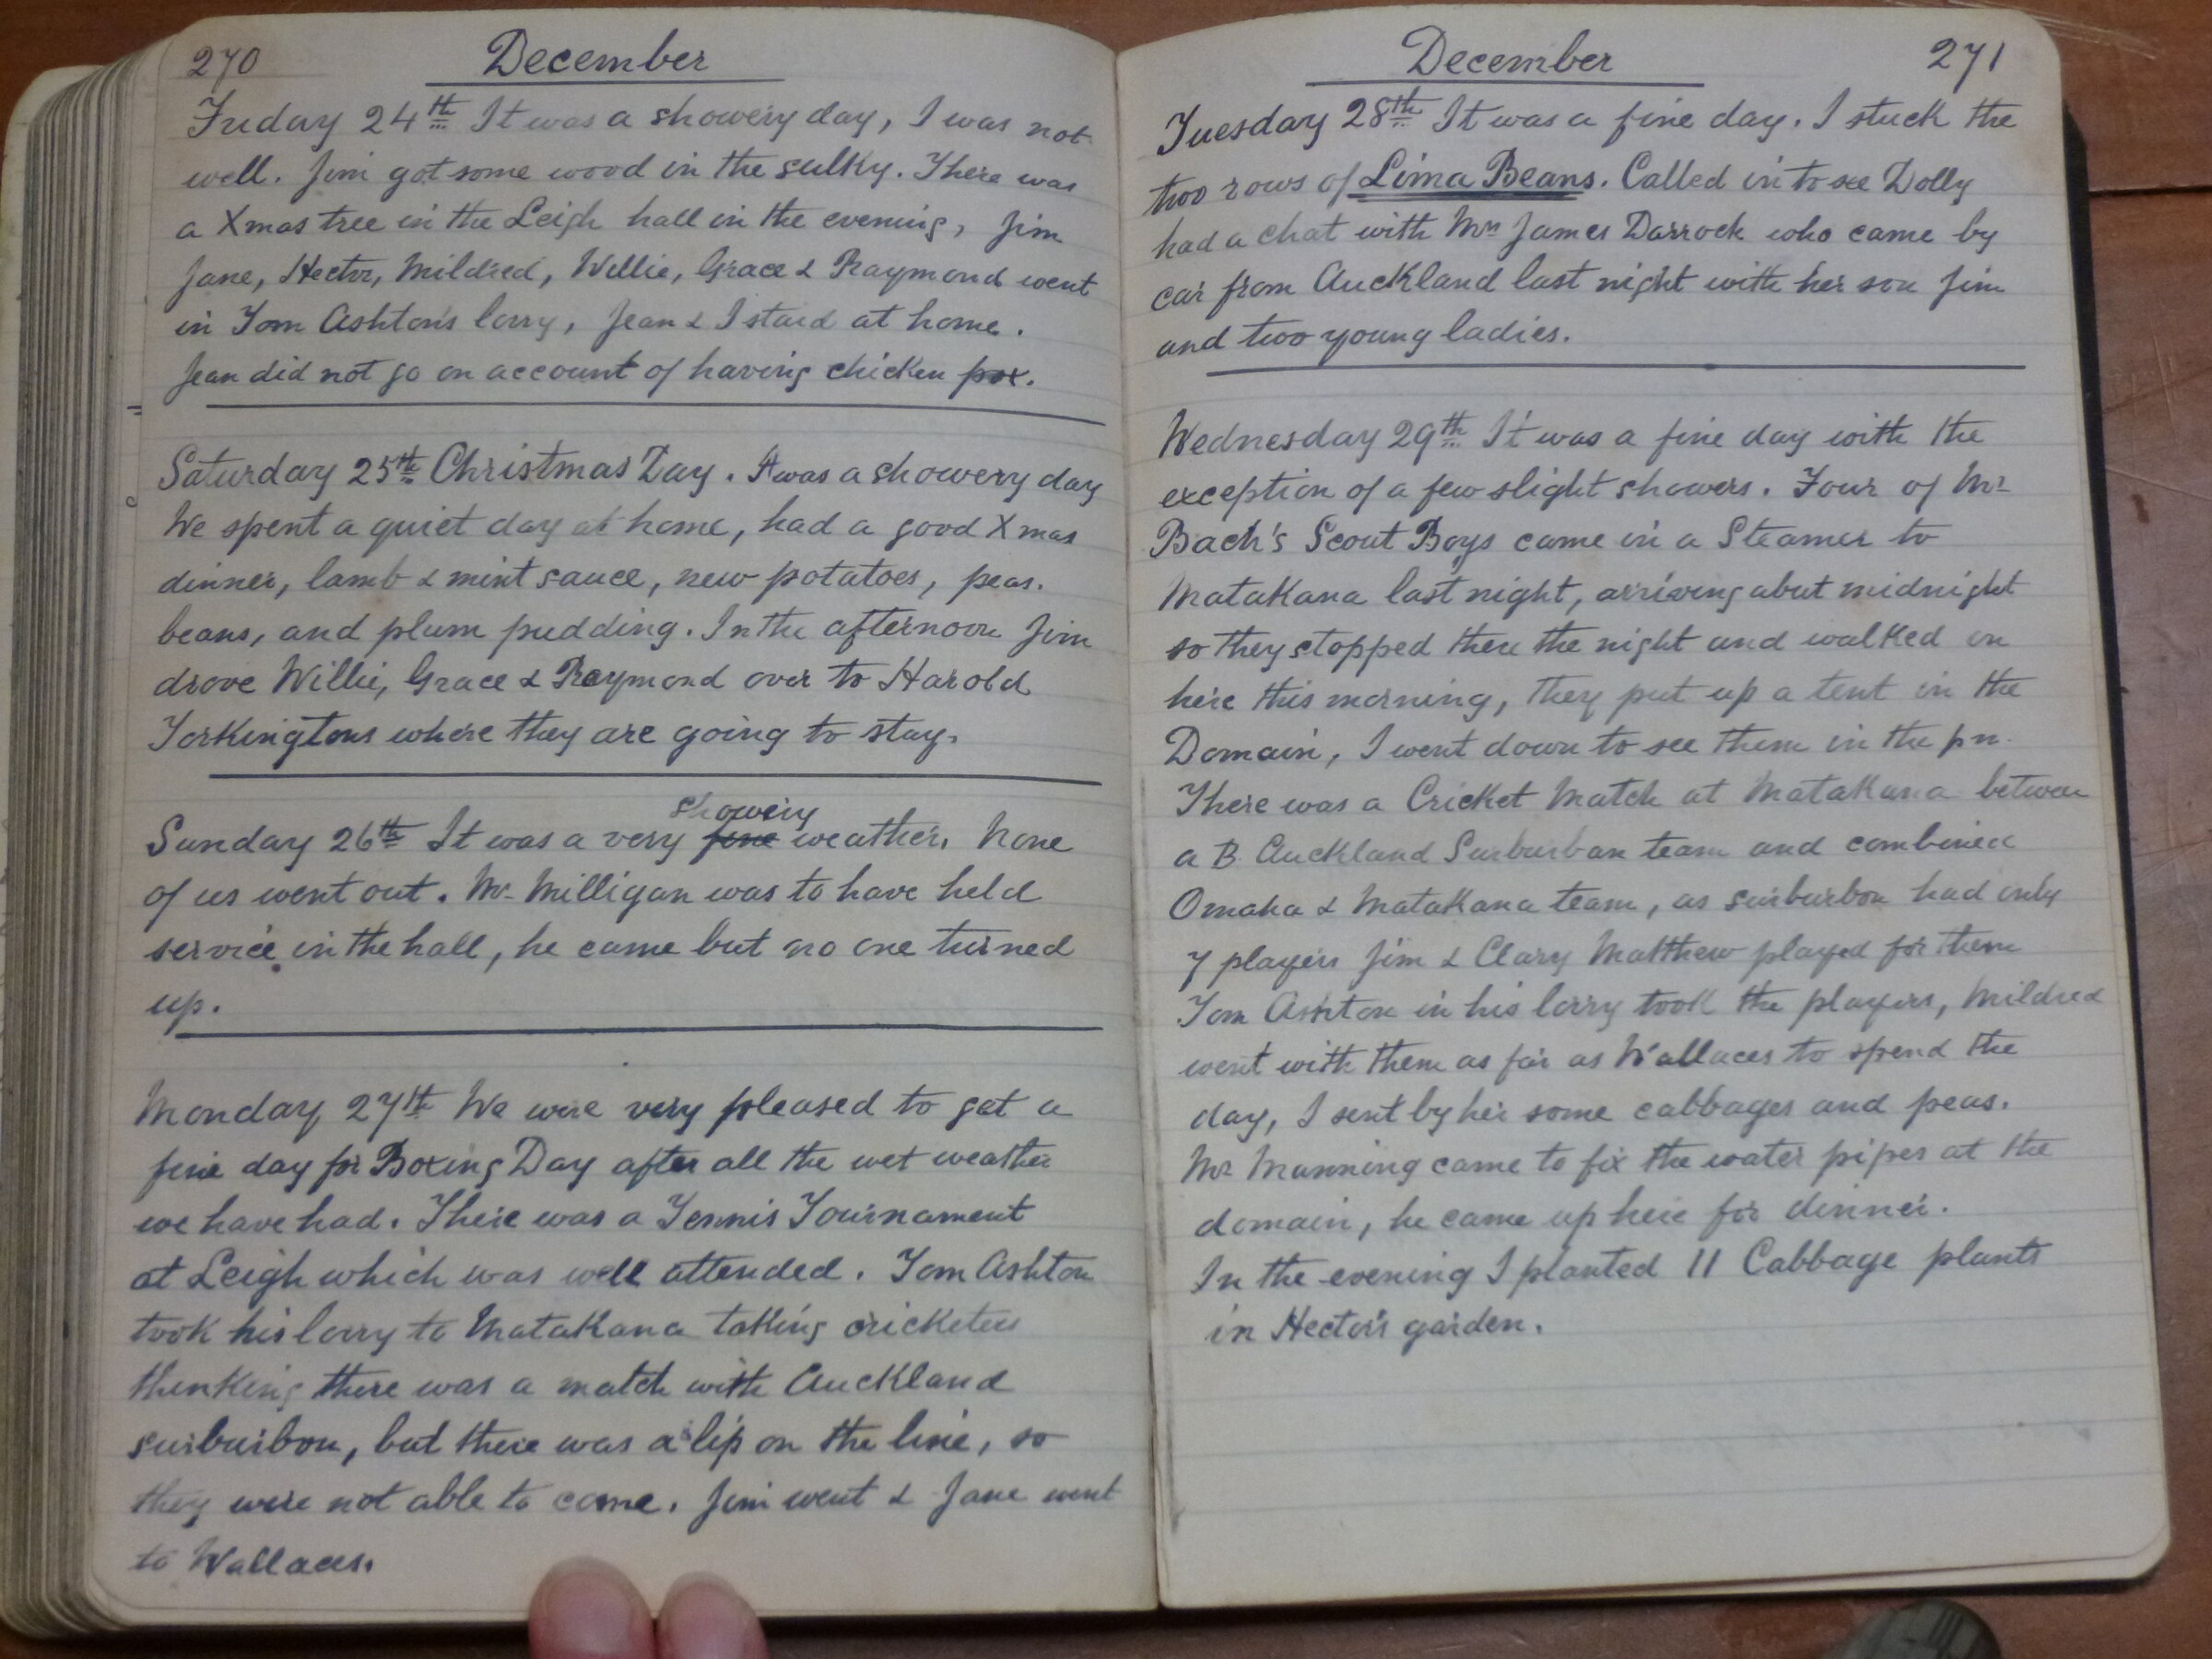 270 December
Friday 24th It was a showery day, I was not
well. Jim got some wood in the sulky. There was
a Xmas tree in the Leigh hall in the evening, Jim
Jane, Hector, Mildred, Willie, Grace & Raymond went
in Tom Ashton's lorry, Jean & I staid at home.
Jean did not go on account of having chicken pox.
Saturday 25th Christmas Day. It was a showery day
We spent a quiet day at home, had a good Xmas
dinner, lamb & mint sauce, new potatoes, peas.
beans, and plum pudding. In the afternoon Jim
drove Willie, Grace & Raymond over to Harold
Torkingtons where they are going to stay.
showery
Sunday 26th It was a very fine weather. None
of us went out. Mr Milligan was to have held
service in the hall, he came but no one turned
up.
Monday 27th We were very pleased to get a
fine day for Boxing Day after all the wet weather
we have had. There was a Tennis Tournament
at Leigh which was well attended. Tom Ashton
took his lorry to Matakana taking cricketers
thinking there was a match with Auckland
surburbon, but there was a slip on the line, so
they were not able to come. Jim went & Jane went
to Wallaces.
December 271
Tuesday 28th It was a fine day. I stuck the
two rows of Lima Beans. Called in to see Dolly
had a chat with Mrs James Darrock who came by
car from Auckland last night with her son Jim
and two young ladies.
Wednesday 29th It was a fine day with the
exception of a few slight showers. Four of Mr
Bach's Scout Boys came in a Steamer to
Matakana last night, arriving abut midnight
so they stopped there the night and walked on
here this morning, they put up a tent in the
Domain, I went down to see them in the pm.
There was a Cricket Match at Matakana between
a B. Auckland Surburban team and combined
Omaha & Matakana team, as surburbon had only
7 players Jim & Clary Matthew played for them
Tom Ashton in his lorry took the players, Mildred
went with them as far as Wallaces to spend the
day, I sent by her some cabbages and peas.
Mr Manning came to fix the water pipes at the
domain, he came up here for dinner.
In the evening I planted 11 Cabbage plants
in Hector's garden.